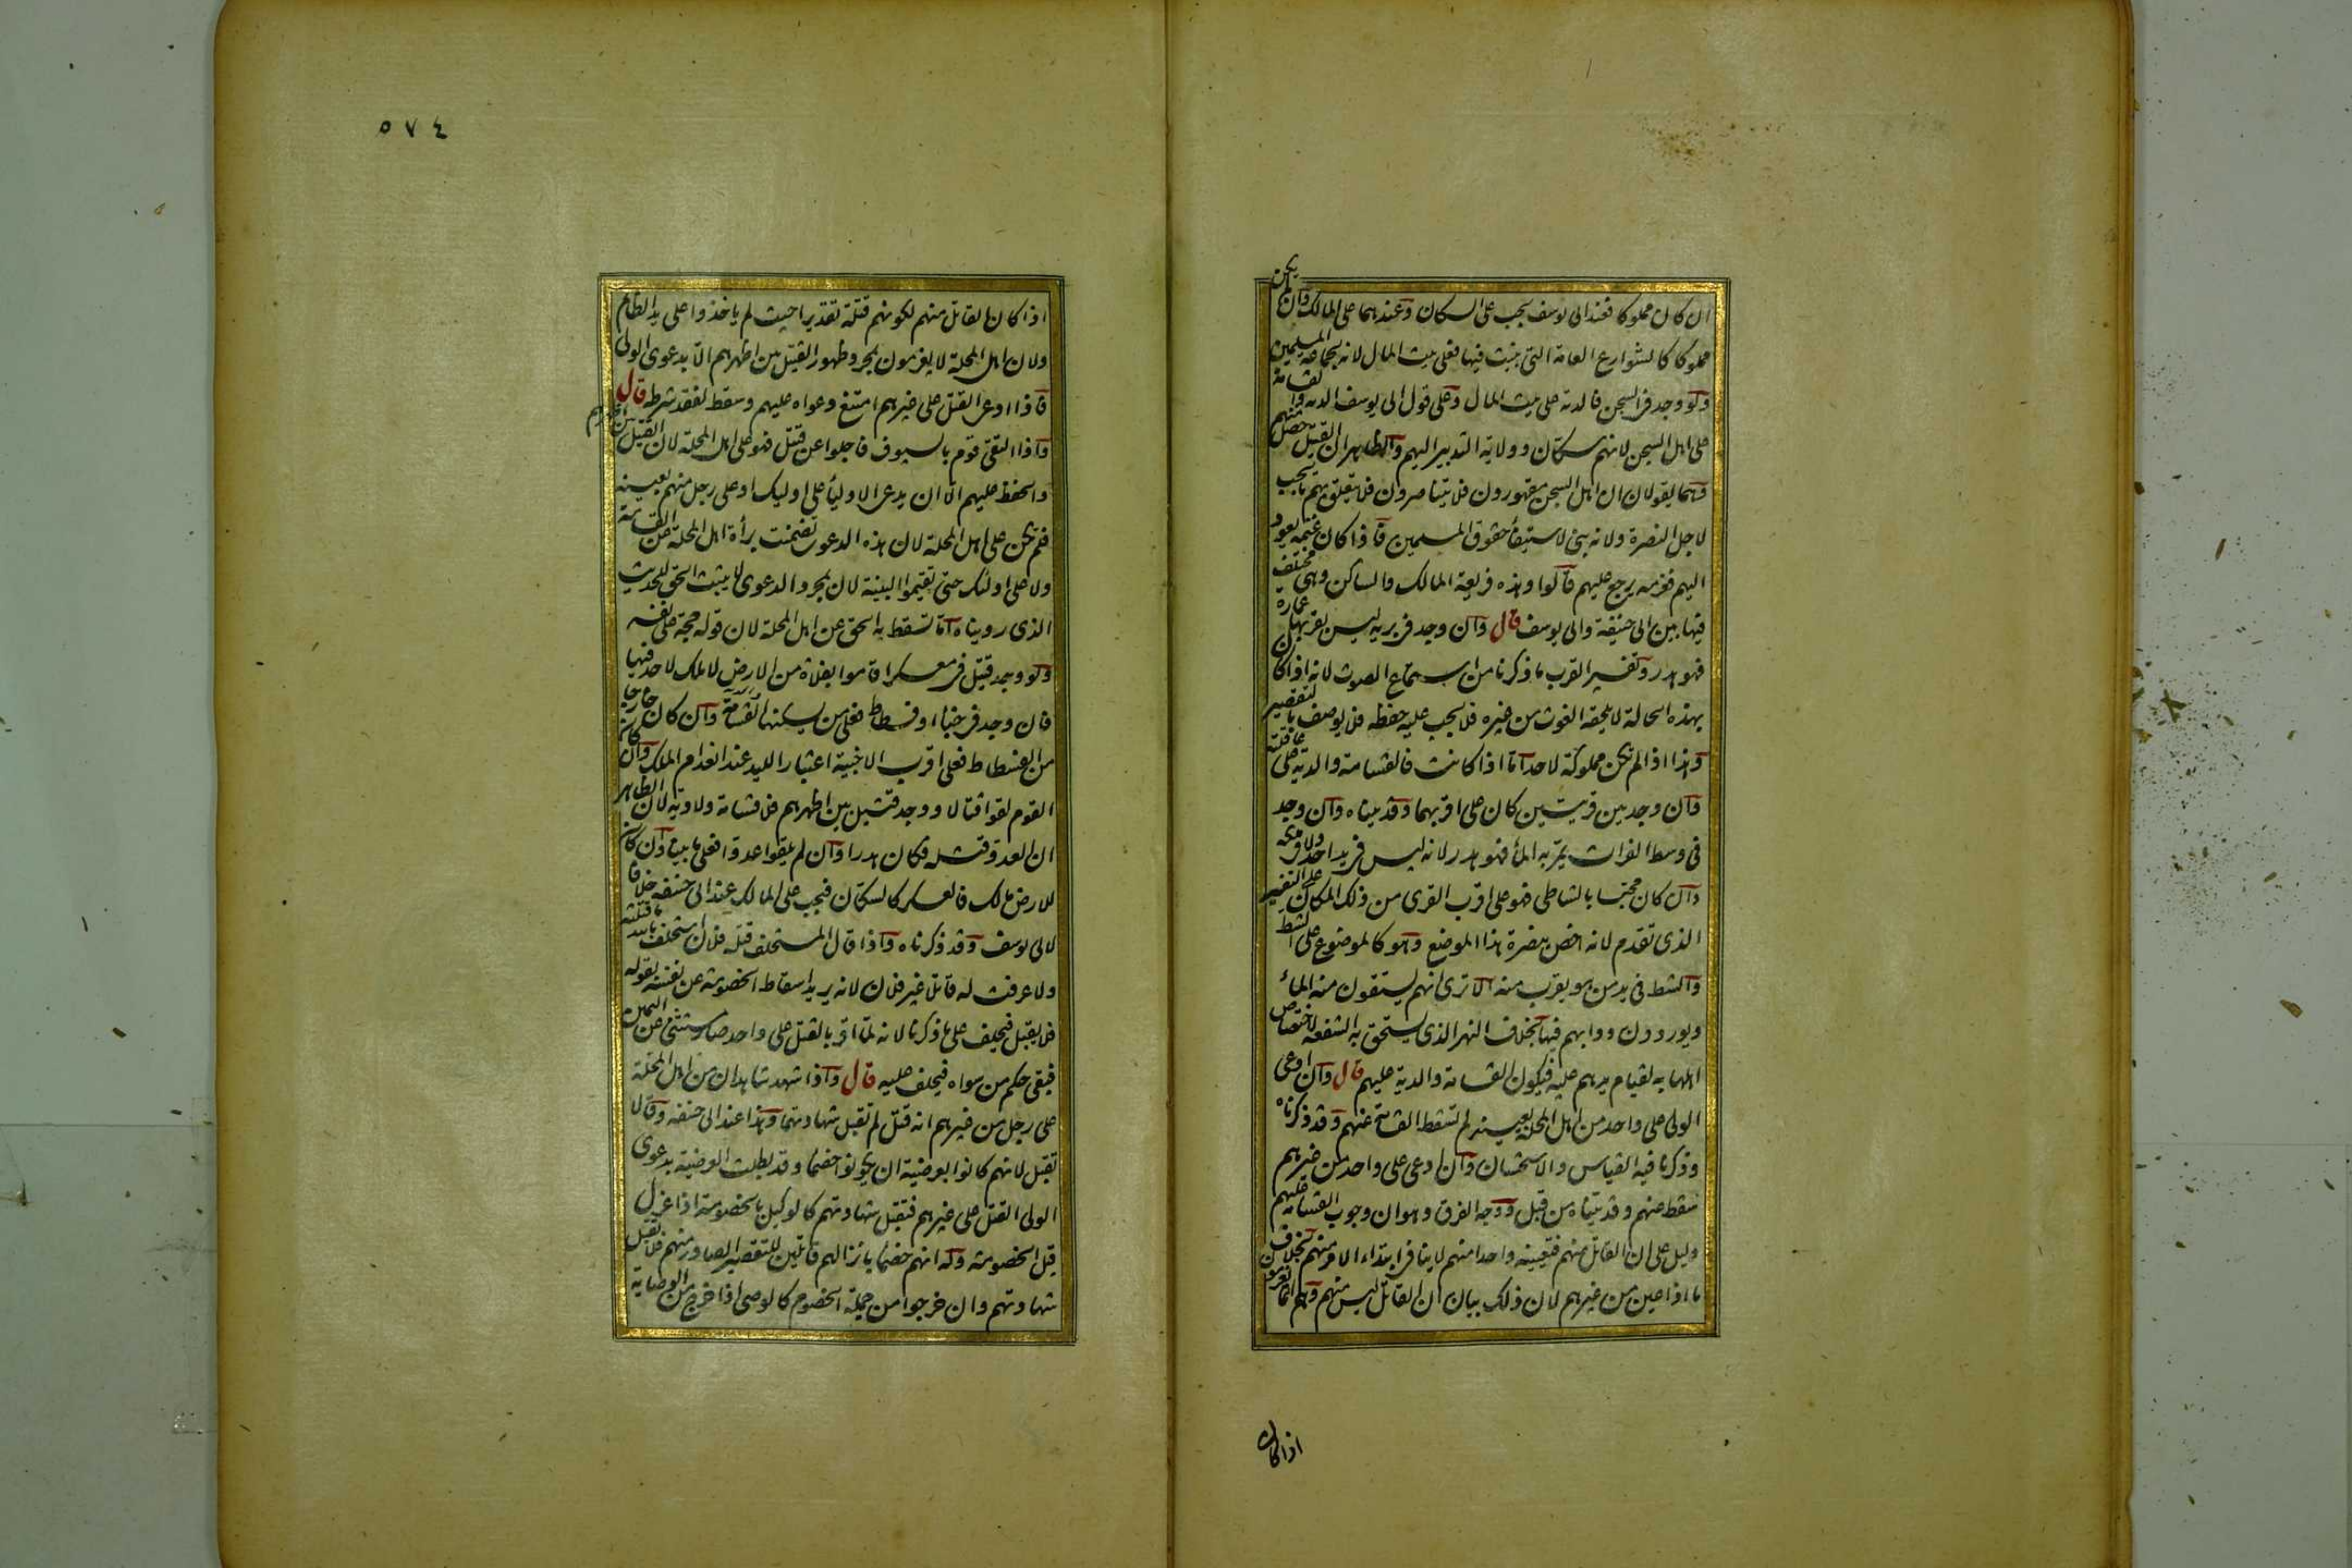 ان كان مملوكا فعند ابى يوسف يجب على السكان وعندهما على المالك وان لم يكن
مملوكا كالشوارع العامة التى بنيت فيها فعلى بيت المال لانه لجماعة المسلمين
ولو وجد فى السجن فالدية على بيت المال وعلى قول ابى يوسف الدية والقسامة
على اهل السجن لانهم سكان وولاية التدبير اليهم والظاهر ان القتيل حصل منهم
وهما يقولان ان اهل السجن مقهورون فلا يتناصرون فلا يتعلق بهم ما يجب
لاجل النصرة ولانه بنى لاستيفاء حقوق المسلمين فاذا كان غنمه يعود
اليهم فغرمه يرجع عليهم قالوا وهذه فريعة المالك والساكن وهى مختلف
فيها بين ابى حنيفة وابى يوسف قال وان وجد فى برية ليس بقربها عمارة
فهو هدر وتفسير القرب ما ذكرنا من استماع الصوت لانه اذا كان
بهذه الحالة لا يلحقه الغوث من غيره فلا يجب عليه حفظه فلا يوصف بالتقصير
وهذا اذا لم تكن مملوكة لاحد اما اذا كانت فالقسامة والدية على عاقلته
وان وجد بين قريتين كان على اقربهما وقد بيناه وان وجد
فى وسط الفرات يمر به الماء فهو هدر لانه ليس فى يد احد ولا فى ملكه
وان كان محتبسا بالشاطى فهو على اقرب القرى من ذلك المكان على التفسير
الذى تقدم لانه اخص بنصرة هذا الموضع وهو كالموضوع على الشط
والشط فى يد من هو بقرب منه الا ترى انهم يستقون منه الماء
ويوردون دوابهم فيها بخلاف النهر الذى يستحق به الشفعة لاختصاص
اهلها به لقيام يدهم عليه فيكون القسامة والدية عليهم قال وان ادعى
الولى على واحد من اهل المحلة بعينه لم تسقط القسامة عنهم وقد ذكرناه
وذكرنا فيه القياس والاستحسان وان ادعى على واحد من غيرهم
سقط عنهم وقد بيناه من قبل ووجه الفرق وهو ان وجوب القسامة عليهم
دليل على ان القاتل منهم فتعيينه واحدا منهم لا ينافى ابتداء الامر منهم بخلاف
ما اذا عين من غيرهم لان ذلك بيان ان القاتل ليس منهم وهم انما يغرمون
اذا كان
٥٧٤
اذا كان القاتل منهم لكونهم قتلة تقديرا حيث لم ياخذوا على يد الظالم
ولان اهل المحلة لا يغرمون بمجرد ظهور القتيل بين اظهرهم الا بدعوى الولى
فاذا ادعى القتل على غيرهم امتنع دعواه عليهم وسقط لفقد شرطه قال
واذا التقى قوم بالسيوف فاجلوا عن قتيل فهو على اهل المحلة لان القتيل بين اظهرهم
والحفظ عليهم الا ان يدعى الاولياء على اوليك او على رجل منهم بعينه
فلم يكن على اهل المحلة لان هذه الدعوى تضمنت براءة اهل المحلة عن القسامة
ولا على اولئك حتى تقيموا البينة لان بمجرد الدعوى لا يثبت الحق للحديث
الذى رويناه اما تسقط به الحق عن اهل المحلة لان قوله حجة على نفسه
ولو وجد قتيل فى معسكر اقاموا بفلاة من الارض لا ملك لاحد فيها
فان وجد فى خباء او فسطاط فعلى من يسكنها القسامة وان كان خارجا
من الفسطاط فعلى اقرب الاخبية اعتبارا لليد عند انعدام الملك وان كان
القوم لقوا قتالا ووجد قتيل بين اظهرهم فلا قسامة ولا دية لان الظاهر
ان العدو قتله فكان هدرا وان لم يلقوا عدوا فعلى ما بيناه وان كان
للارض مالك فالعسكر كالسكان فيجب على المالك عند ابى حنيفة خلافا
لابى يوسف وقد ذكرناه واذا قال المستحلف قتله فلان استحلف بالله ما قتلته
ولا عرفت له قاتلا غير فلان لانه يريد اسقاط الخصومة عن نفسه بقوله
فلا يقبل فيحلف على ما ذكرنا لانه لما اقر بالقتل على واحد صار مستثنى عن اليمين
فبقى حكم من سواه فيحلف عليه قال واذا شهد شاهدان من اهل المحلة
على رجل من غيرهم انه قتل لم تقبل شهادتهما وهذا عند ابى حنيفة وقالا
تقبل لانهم كانوا بعرضية ان يكونوا خصما وقد بطلت العرضية بدعوى
الولى القتل على غيرهم فتقبل شهادتهم كالوكيل بالخصومة اذا عزل
قبل الخصومة وله انهم خصماء بانزالهم قاتلين للتقصير الصادر منهم فلا تقبل
شهادتهم وان خرجوا من جملة الخصوم كالوصى اذا خرج من الوصاية